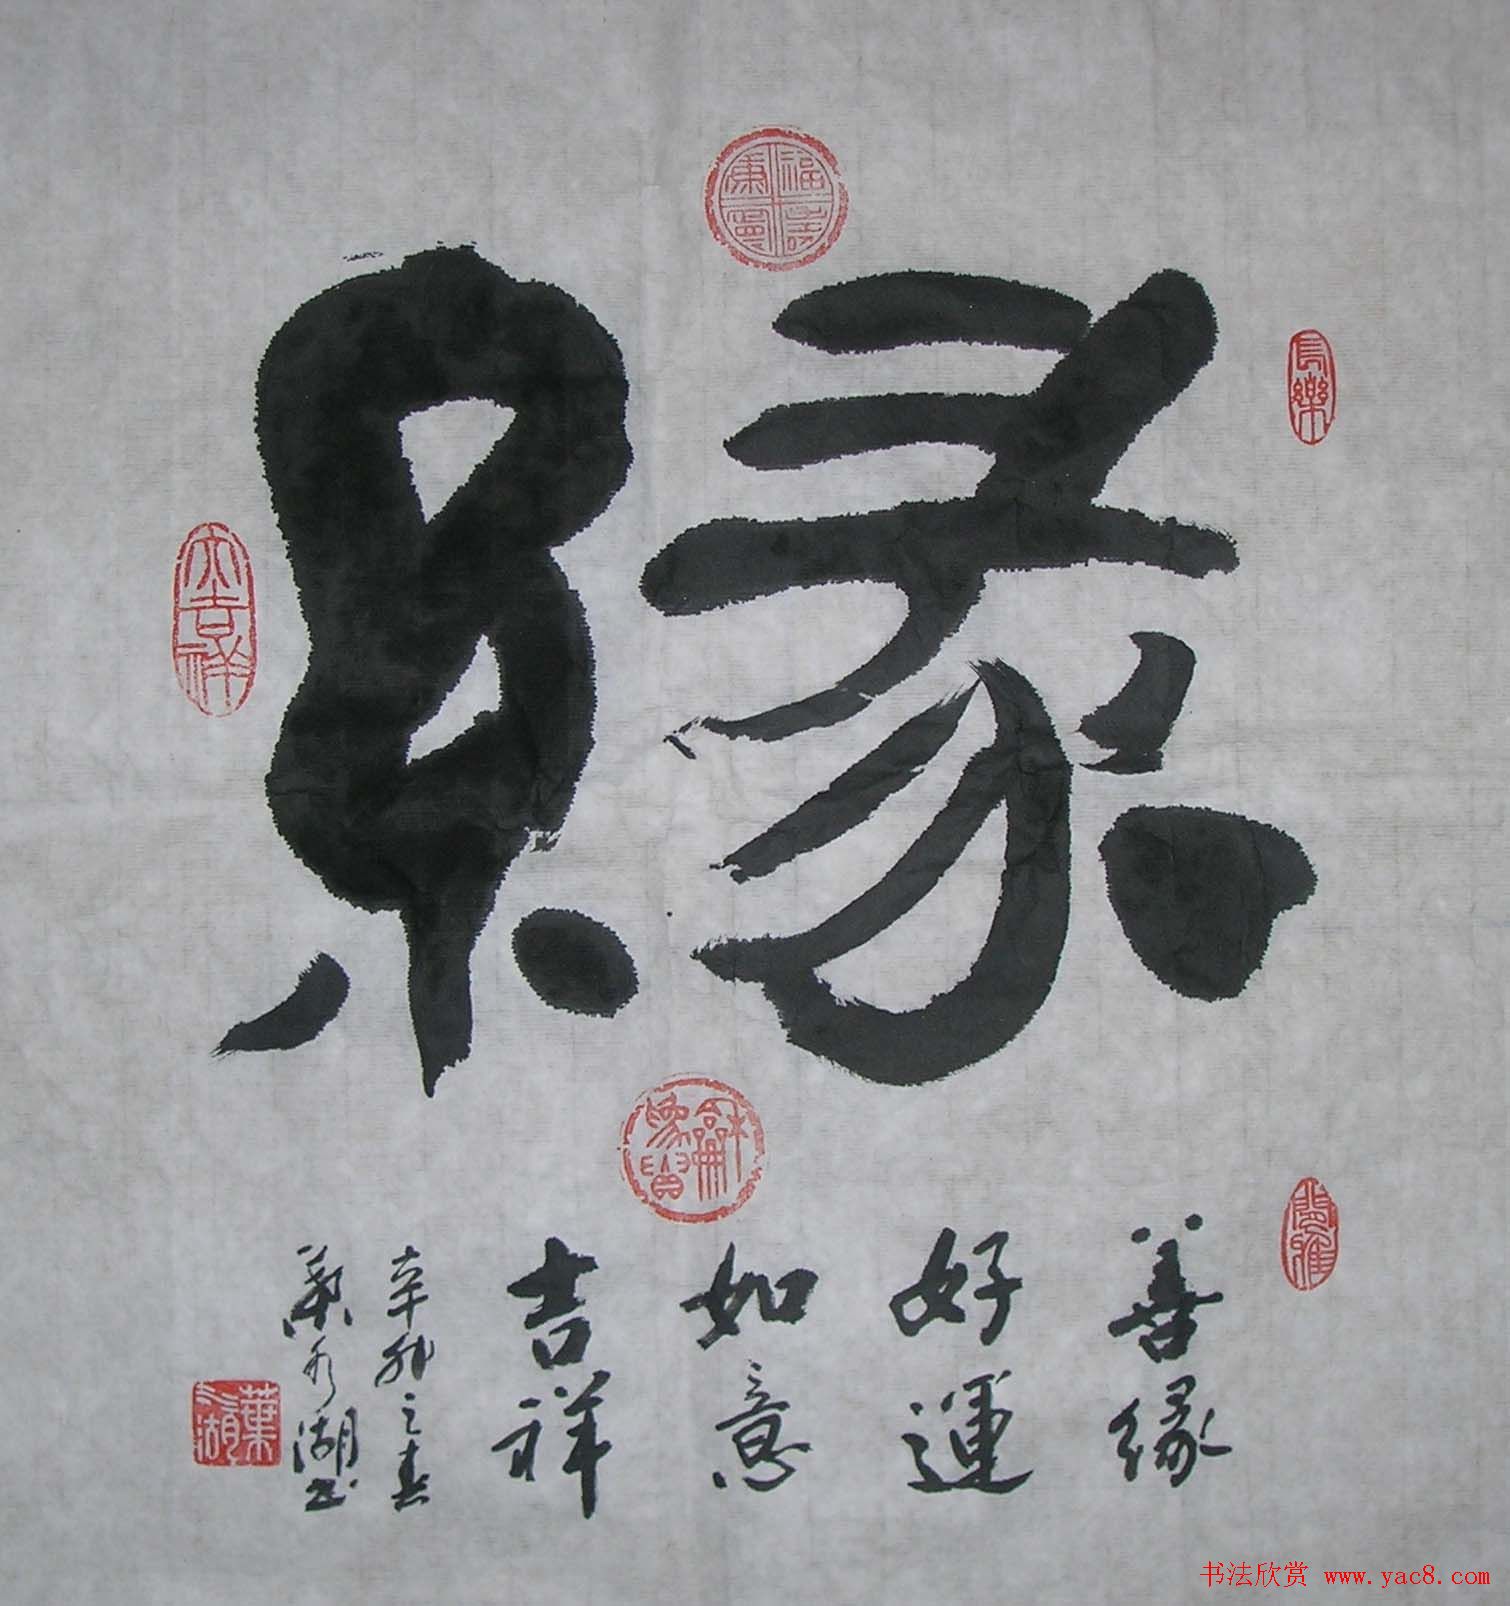 緣
善缘
好運
如意
吉祥
辛卯之春
葉水湖书
長樂
大吉祥
葉
水湖
书法欣赏 www.yac8.com